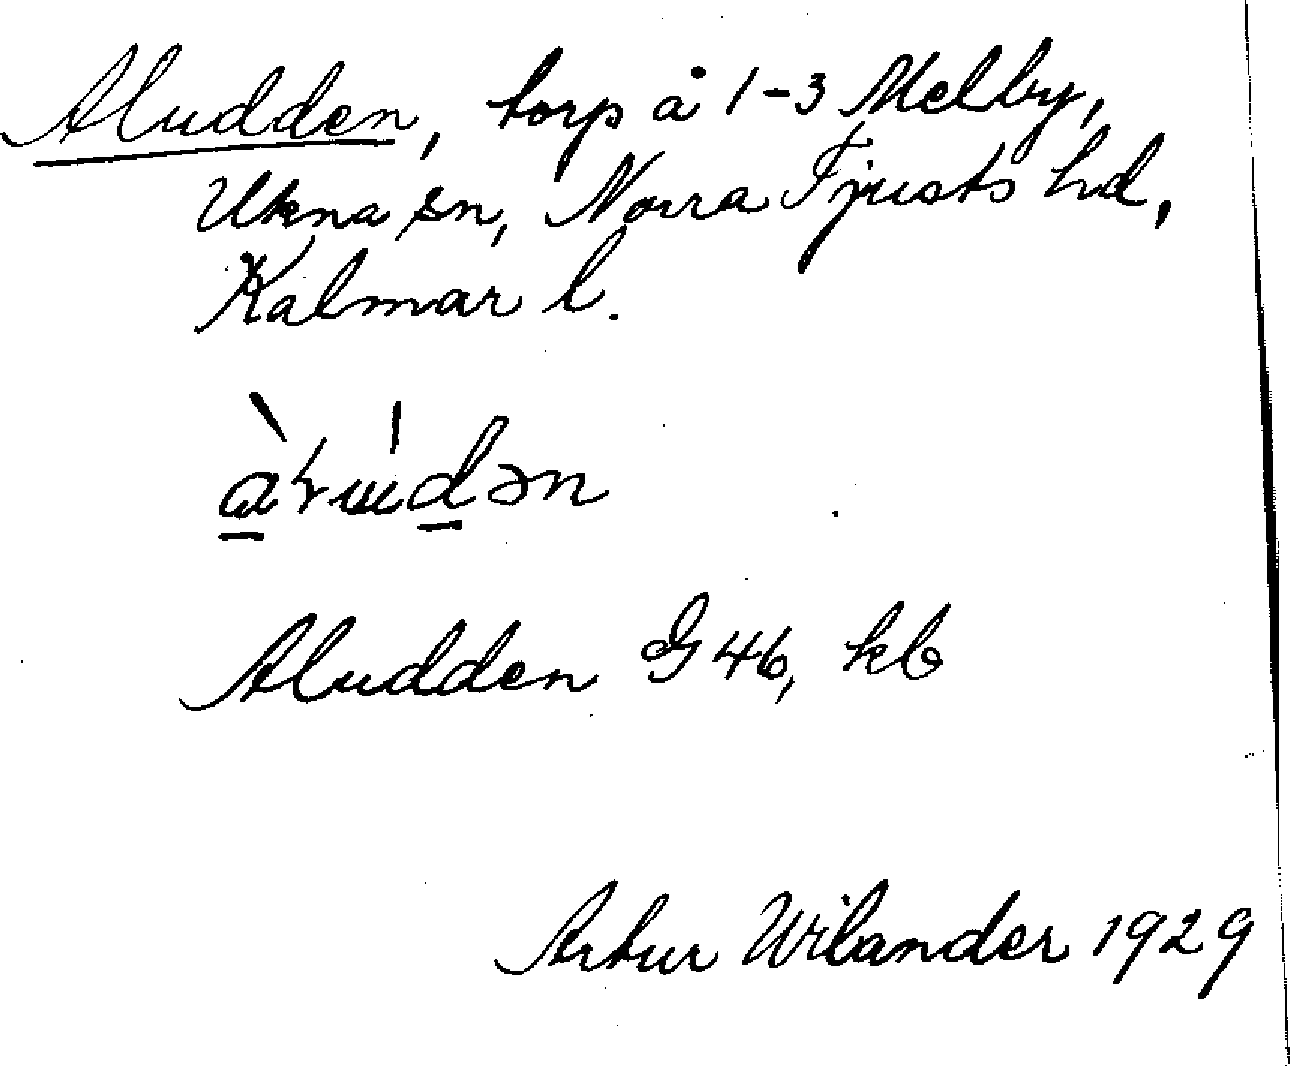 Aludden, torp å 1-3 Melby,
Ukna sn, Norra Tjusts hd,
Kalmar l.
Aludden G 46, kb
Artur Wilander 1929